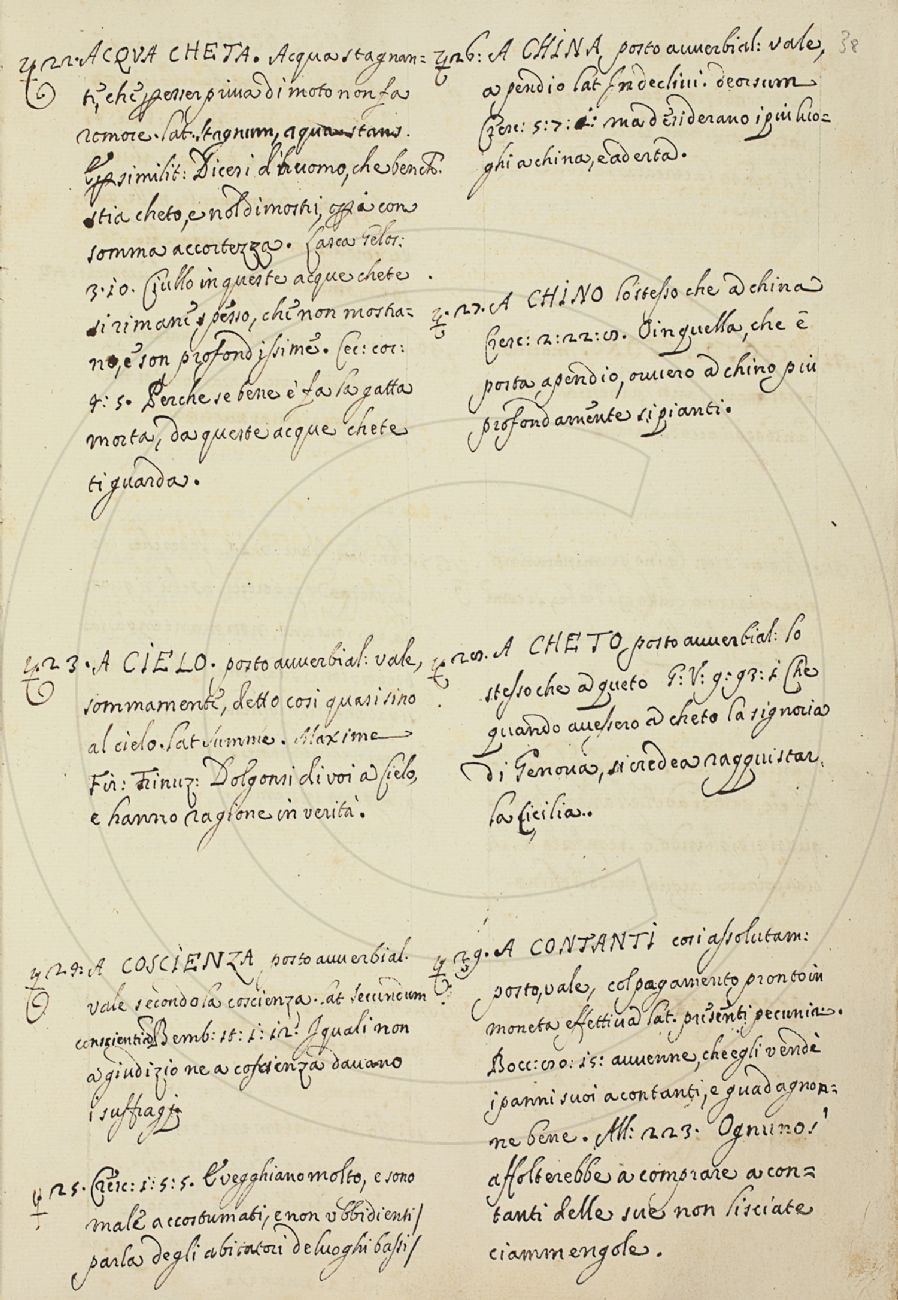 22. ACQVA CHETA. Acqua stagnan=
te, che per esser priva di moto non fa
romore. lat. stagnum, aqua stans.
E per similit: Dicesi d'huomo, che bench.
stia cheto, e nol dimostri, opera con
somma accortezza. Lasca Gelos:
3.10. Ciullo in queste acque chete
si rimane spesso, che non mostra=
no, e son profondissime. Cec: cor:
4: 5. Perche se bene e' fa la gatta
morta, da queste acque chete
ti guarda.
23. A CIELO. posto avverbial: vale,
sommamente, detto cosi quasi sino
al cielo. lat summe. Maxime
Fir: Trinuz: Dolgonsi di voi a Cielo,
e hanno ragione in verità.
24: A COSCIENZA posto avverbial.
vale secondo la coscienza. lat secundum
conscientia Bemb: st: 1: 12: I quali non
a giudizio ne a coscienza davano
i suffragj
25. Cresc: 1: 5: 5. E vegghiano molto, e sono
male accostumati, e non vbbidienti/
parla degli abitatori de luoghi bassi/
38
26: A CHINA posto avverbial: vale,
a pendio lat In declivi. deorsum
Cresc: 5: 7: 1: ma desiderano i piu luo=
ghi a china, e ad erta.
27. A CHINO lo stesso che a china
Cresc: 2: 22: 8. O in quella, che è
posta a pendio, ovvero a chino più
profondamente si pianti.
28. A CHETO posto avverbial: lo
stesso che a queto G: V: 9: 93: 1 Che
quando avessero a cheto la signoria
di Genova, si credea racquistar.
la Cicilia..
29. A CONTANTI cosi assolutam:
posto, vale, col pagamento pronto in
moneta effettiva lat: presenti pecunia.
Bocc: 80: 15: avvenne, che egli vendè
i panni suoi a contanti, e guadagnon=
ne bene. All: 223. Ognuno s'
affolterebbe a comprare a con=
tanti delle sue non lisciate
ciammengole.